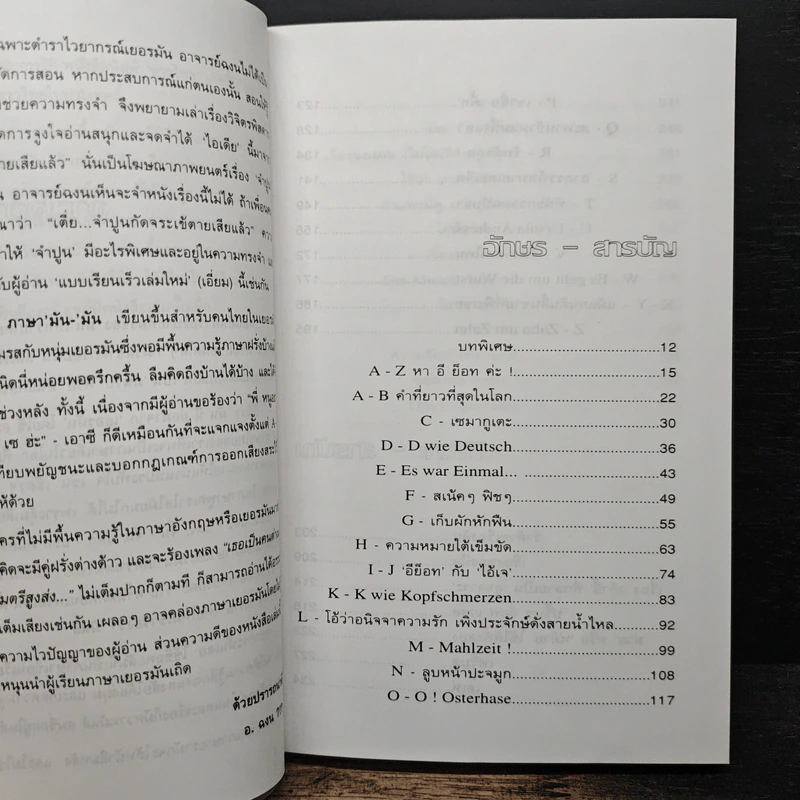 ฉพาะตำราไวยากรณ์เยอรมัน อาจารย์ฉงนไม่ได้เป็น
ัดการสอน หากประสบการณ์แก่ตนเองนั้น สอนให้รู้
ช่วยความทรงจำ จึงพยายามเล่าเรื่องวิจิตรพิสดาร
ิดการจูงใจอ่านสนุกและจดจำได้ 'ไอเดีย' นี้มาจาก
ายเสียแล้ว" นั่นเป็นโฆษณาภาพยนตร์เรื่อง 'จำปูน'
น อาจารย์ฉงนเห็นจะจำหนังเรื่องนี้ไม่ได้ ถ้าเพื่อน
ณาว่า "เตี่ย...จำปูนกัดจระเข้ตายเสียแล้ว"
ำให้ 'จำปูน' มีอะไรพิเศษและอยู่ในความทรงจำ
ับผู้อ่าน 'แบบเรียนเร็วเล่มใหม่' (เอี่ยม) นี้เช่นกัน
ภาษา'มัน-'มัน เขียนขึ้นสำหรับคนไทยในเยอร
มรสกับหนุ่มเยอรมันซึ่งพอมีพื้นความรู้ภาษาฝรั่งบ้าง
นิดนี่หน่อยพอครึกครื้น ลืมคิดถึงบ้านได้บ้าง และได้
ช่วงหลัง ทั้งนี้ เนื่องจากมีผู้อ่านขอร้องว่า "พี่
เซ ฮ่ะ" - เอาซิ ก็ดีเหมือนกันที่จะแจกแจงตั้งแต่ A
ทียบพยัญชนะและบอกกฎเกณฑ์การออกเสียงสระ
ห้ด้วย
ครที่ไม่มีพื้นความรู้ในภาษาอังกฤษหรือเยอรมัน
คิดจะมีคู่ฝรั่งต่างด้าว และจะร้องเพลง "เธอเป็นคนต่าง
มตรีสูงส่ง..." ไม่เต็มปากก็ตามที ก็สามารถอ่านได้
ต็มเสียงเช่นกัน เผลอๆ อาจคล่องภาษาเยอรมันโดย
ความไวปัญญาของผู้อ่าน ส่วนความดีของหนังสือเล่ม
หนุนนำผู้เรียนภาษาเยอรมันเถิด
ด้วยปรารถนา
อ. ฉงน
อักษร – สารบัญ
บทพิเศษ..............................12
A - Z หา อี ย็อท ค่ะ !..............................15
A - B คำที่ยาวที่สุดในโลก..............................22
C - เซมากูเตะ..............................30
D - D wie Deutsch..............................36
E - Es war Einmal... ..............................43
F - สเน้คๆ ฟิชๆ..............................49
G - เก็บผักหักฟืน..............................55
H - ความหมายใต้เข็มขัด..............................63
I - J 'อีย็อท' กับ 'ไอ้เจ'..............................74
K - K wie Kopfschmerzen..............................83
L - โอ้ว่าอนิจจาความรัก เพิ่งประจักษ์ดั่งสายน้ำไหล..........92
M - Mahlzeit !..............................99
N - ลูบหน้าปะจมูก..............................108
O - O ! Osterhase..............................117